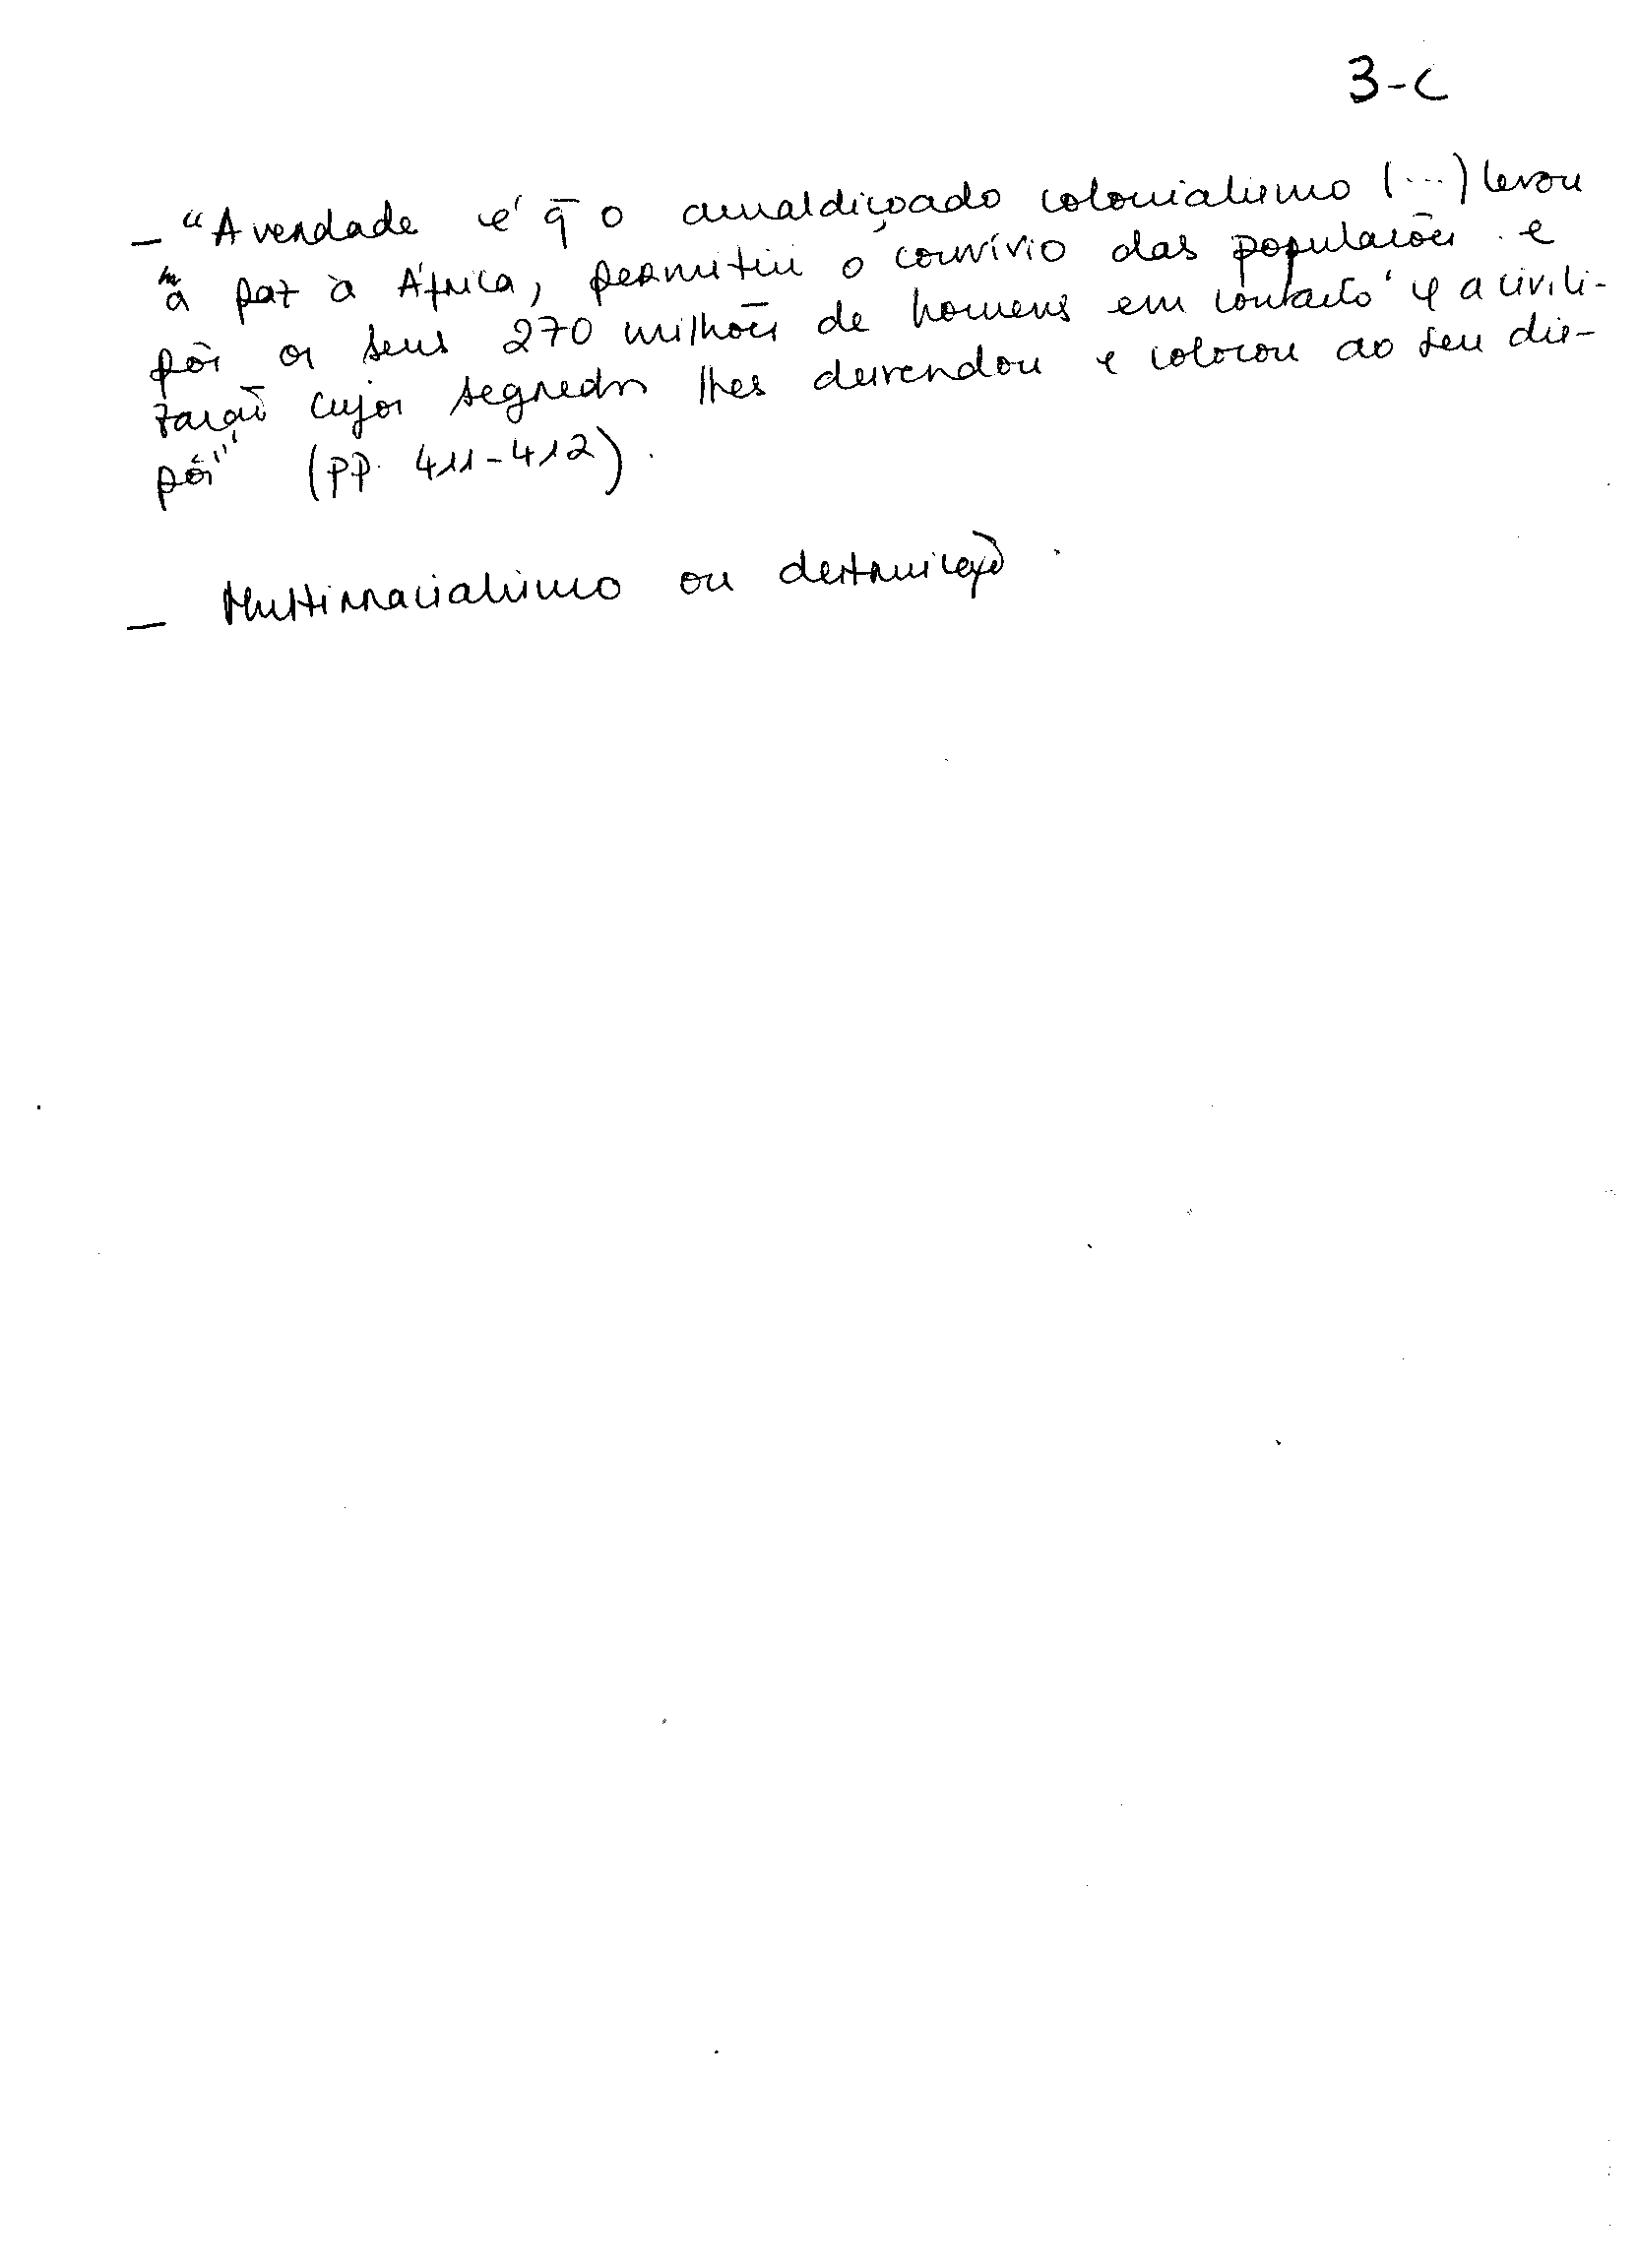 3-C
— "A verdade é q̄ o amaldiçoado colonialismo (...) levou
a paz à África, permitiu o convívio das populações e
pôs os seus 270 milhões de homens em contacto c/ a civili-
zação cujos segredos lhes desvendou e colocou ao seu dis-
pôr" (pp. 411-412).
— Multirracialismo ou destruição.